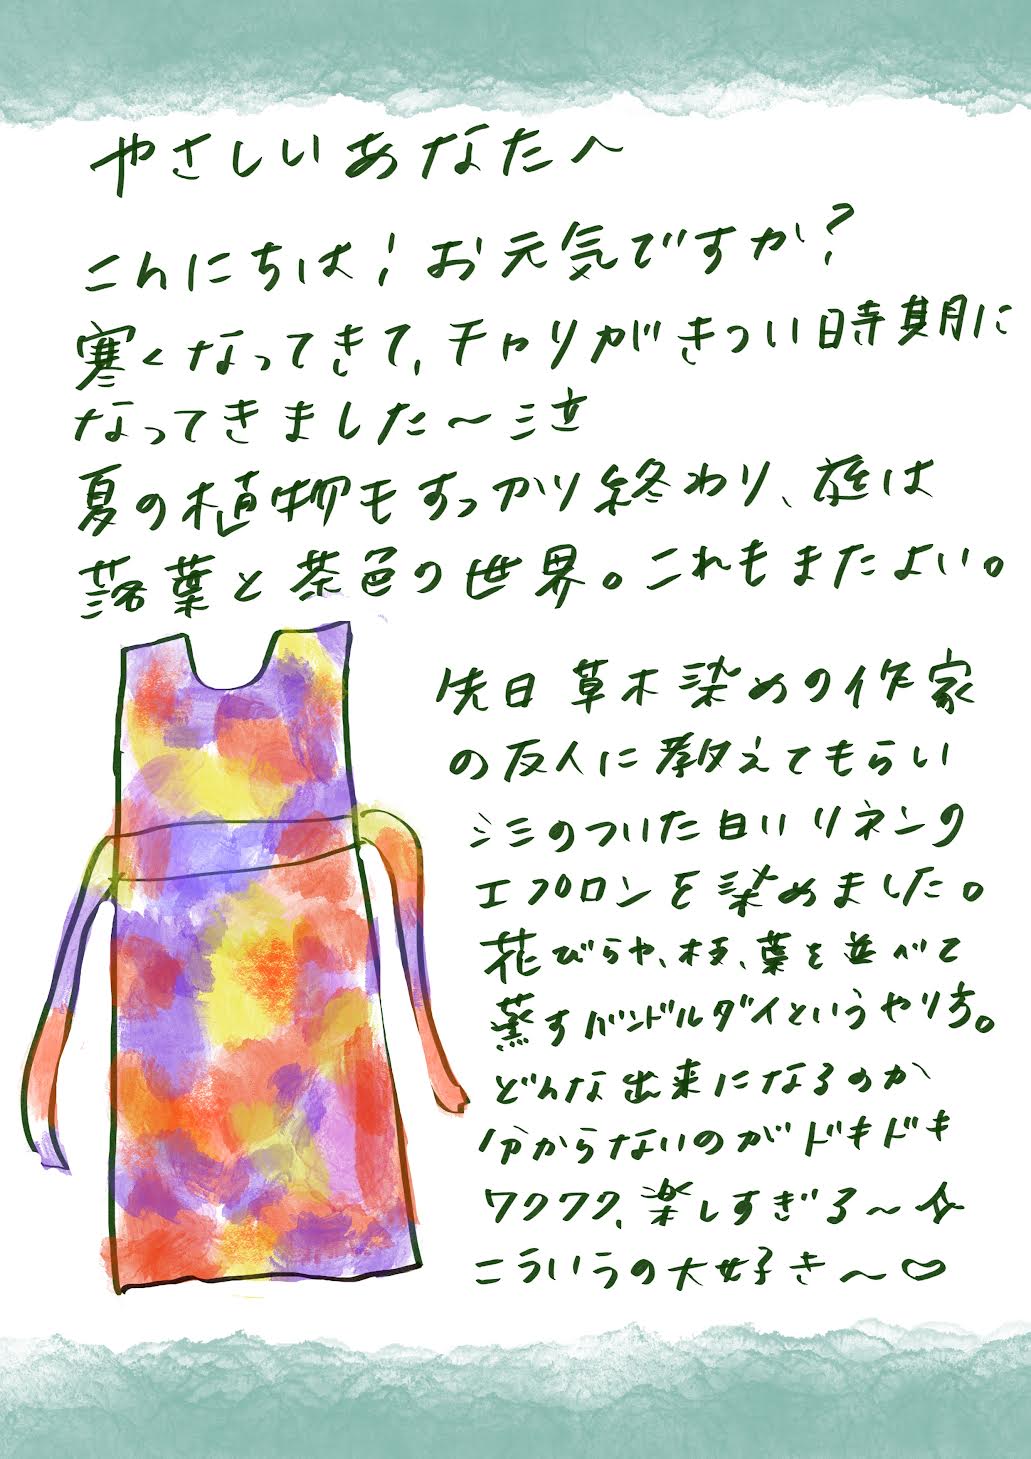 やさしいあなたへ
こんにちは！お元気ですか？
寒くなってきて、チャリがきつい時期に
なってきました〜泣
夏の植物もすっかり終わり、庭は
落葉と茶色の世界。これもまたよい。
先日草木染めの作家
の友人に教えてもらい
シミのついた白いリネンの
エプロンを染めました。
花びらや、枝、葉を並べて
蒸すバンドルダイというやり方。
どんな出来になるのか
分からないのがドキドキ
ワクワク、楽しすぎる〜☆
こういうの大好き〜♡